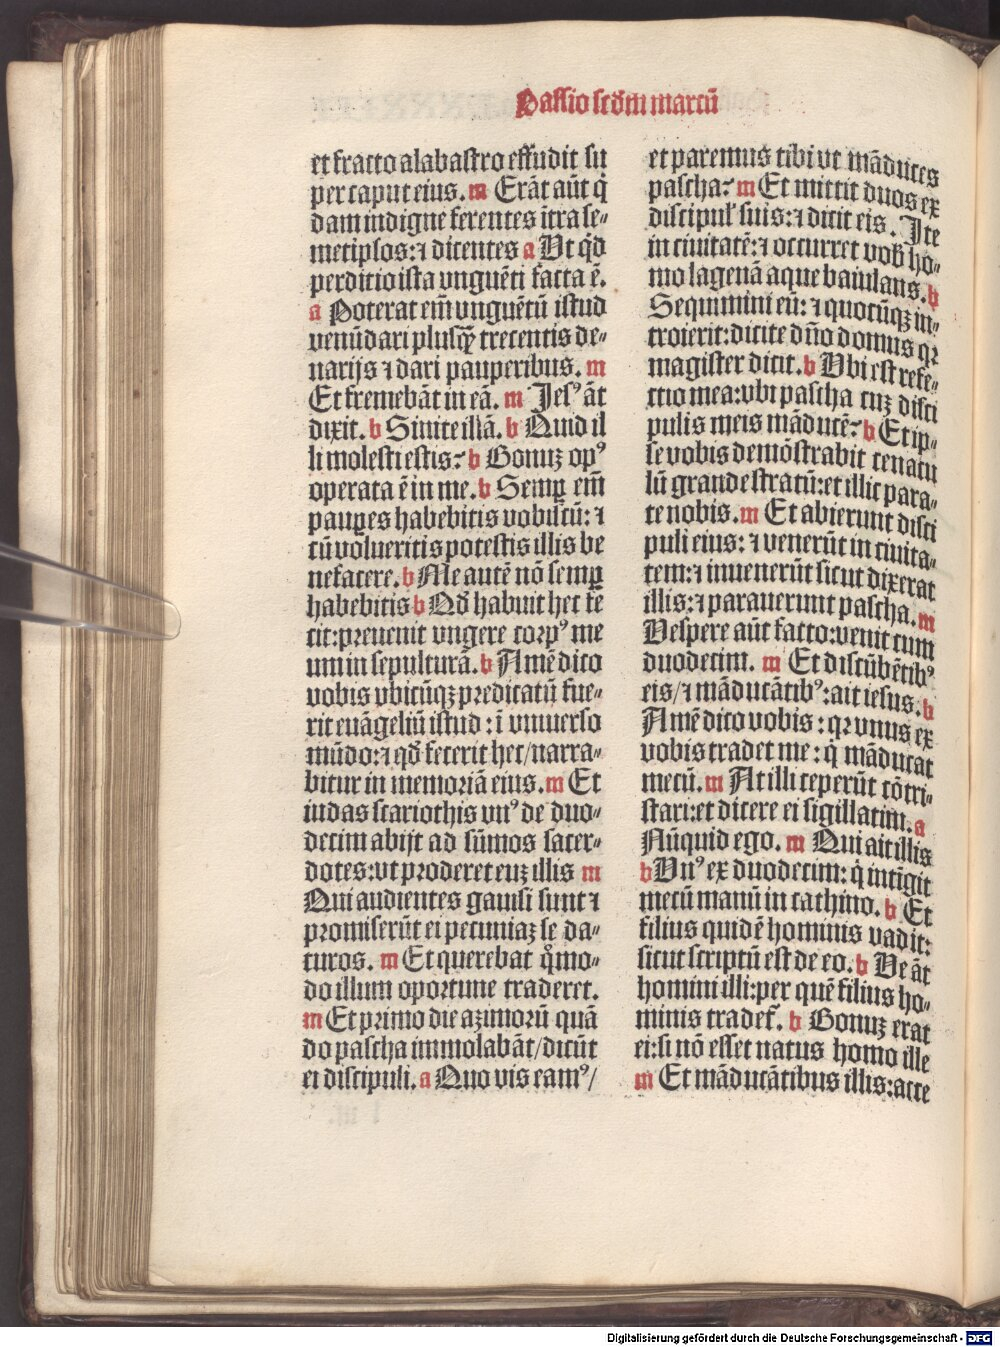 Passio scd̃m marcũ
et fracto alabastro effudit su
per caput eius. m Erãt aũt q̇
dam indigne ferentes ĩtra se-
metipsos: ⁊ dicentes a Vt qͥd
perditio ista vnguẽti facta ẽ.
a Poterat em̃ vnguẽtũ istud
venũdari plusꝙ̃ trecentis de-
narijs ⁊ dari pauperibus. m
Et fremebãt in eã. m Jesꝰ ãt
dixit. b Sinite illã. b Quid il
li molesti estis? b Bonuꝫ opꝰ
operata ẽ in me. b Semꝑ em̃
pauꝑes habebitis vobiscũ: ⁊
cũ volueritis potestis illis be
nefacere. b Me autẽ nõ semꝑ
habebitis b Qd̃ habuit hec fe
cit: preuenit vngere corpꝰ me
um in sepulturã. b Amẽ dico
vobis vbicũqꝫ predicatũ fue-
rit euãgeliũ istud: ĩ vniuerso
mũdo: ⁊ qd̃ fecerit hec/ narra-
bitur in memoriã eius. m Et
iudas scariothis vnꝰ de duo-
decim abijt ad sũmos sacer-
dotes: vt proderet euꝫ illis m
Qui audientes gauisi sunt ⁊
promiserũt ei pecuniaꝫ se da-
turos. m Et querebat qͦmo-
do illum oportune traderet.
m Et primo die azimorũ quã
do pascha immolabãt/ dicũt
ei discipuli. a Quo vis eamꝰ/
et paremus tibi vt mãduces
pascha? m Et mittit duos ex
discipul' suis: ⁊ dicit eis. Ite
in ciuitatẽ: ⁊ occurret vob̃ ho-
mo lagenã aque baiulans. b
Sequimini eũ: ⁊ quocũqꝫ in-
troierit: dicite dño domus qꝛ
magister dicit. b Vbi est refe-
ctio mea: vbi pascha cuꝫ disci
pulis meis mãducẽ? b Et ip-
se vobis demõstrabit cenacu
lũ grande stratũ: et illic para-
te nobis. m Et abierunt disci
puli eius: ⁊ venerũt in ciuita-
tem: ⁊ inuenerũt sicut dixerat
illis: ⁊ parauerunt pascha. m
Vespere aũt facto: venit cum
duodecim. m Et discũbẽtibꝰ
eis/ ⁊ mãducãtibꝰ: ait iesus. b
Amẽ dico vobis: qꝛ vnus ex
vobis tradet me: q̇ mãducat
mecũ. m At illi ceperũt cõtri-
stari: et dicere ei sigillatim. a
Nũquid ego. m Qui ait illis
b Vnꝰ ex duodecim: q̇ intĩgit
mecũ manũ in cathino. b Et
filius quidẽ hominis vadit:
sicut scriptũ est de eo. b Ve ãt
homini illi: per quẽ filius ho-
minis tradet̃. b Bonuꝫ erat
ei: si nõ esset natus homo ille
m Et mãducãtibus illis: acce
Digitalisierung gefördert durch die Deutsche Forschungsgemeinschaft - DFG